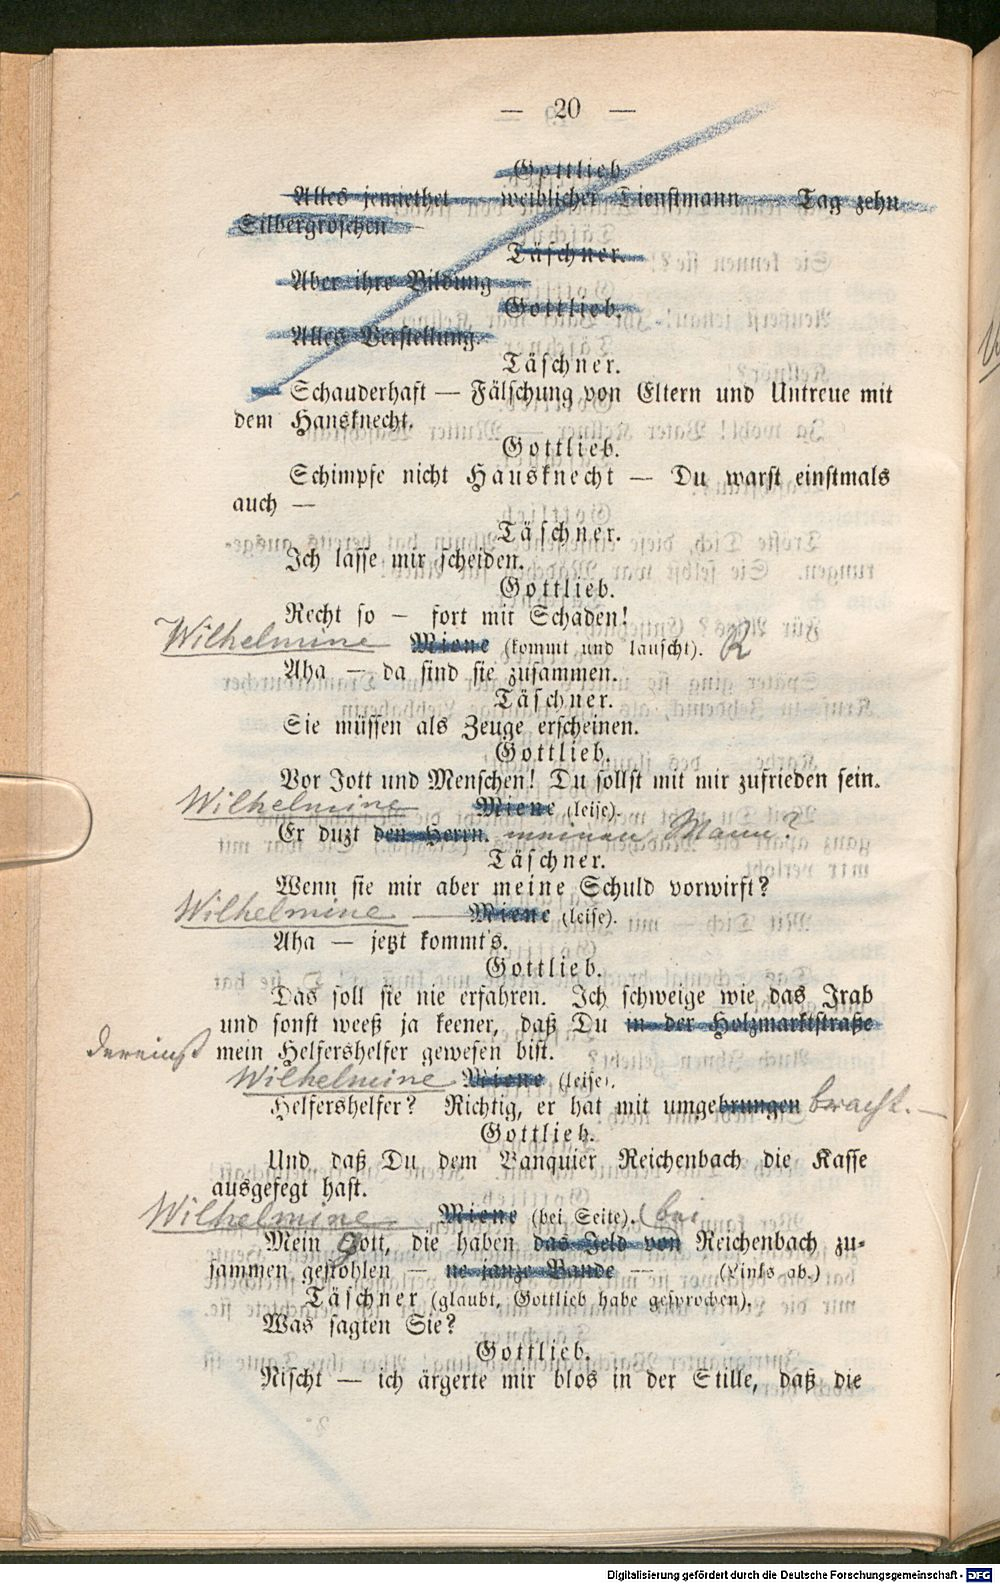 — 20 —
Gottlieb
Alles jemiethet — weiblicher Dienstmann — Tag zehn
Silbergroschen —
Täschner.
Aber ihre Bildung —
Gottlieb.
Alles Verstellung.
Täschner.
Schauderhaft — Fälschung von Eltern und Untreue mit
dem Hausknecht.
Gottlieb.
Schimpfe nicht Hausknecht — Du warst einstmals
auch —
Täschner.
Ich lasse mir scheiden.
Gottlieb.
Recht so — fort mit Schaden!
Wilhelmine Miene (kommt und lauscht). R
Aha — da sind sie zusammen.
Täschner.
Sie müssen als Zeuge erscheinen.
Gottlieb.
Vor Jott und Menschen! Du sollst mit mir zufrieden sein.
Wilhelmine Miene (leise).
Er duzt den Herrn. meinen Mann?
Täschner.
Wenn sie mir aber meine Schuld vorwirft?
Wilhelmine — Miene (leise).
Aha — jetzt kommt's.
Gottlieb.
Das soll sie nie erfahren. Ich schweige wie das Irab
und sonst weeß ja keener, daß Du in der Holzmarktstraße
dereinst mein Helfershelfer gewesen bist.
Wilhelmine Miene (leise).
Helfershelfer? Richtig, er hat mit umgebrungen bracht. —
Gottlieb.
Und daß Du dem Banquier Reichenbach die Kasse
ausgefegt hast.
Wilhelmine Miene (bei Seite). (bei
Mein Gott, die haben das Jeld von Reichenbach zu-
sammen gestohlen — ne janze Bande — (Links ab.)
Täschner (glaubt, Gottlieb habe gesprochen).
Was sagten Sie?
Gottlieb.
Nischt — ich ärgerte mir blos in der Stille, daß die
Digitalisierung gefördert durch die Deutsche Forschungsgemeinschaft - DFG